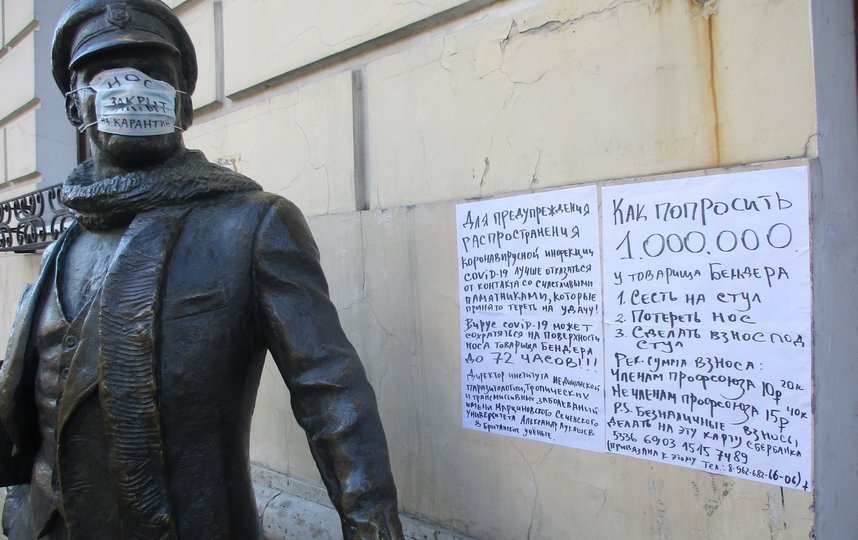 НОС
ЗАКРЫТ
НА КАРАНТИН
Для предупреждения
распространения
коронавирусной инфекции
COVID-19 лучше отказаться
от контакта со счастливыми
памятниками, которые
принято тереть на удачу!
Вирус COVID-19 может
сохраняться на поверхности
носа товарища Бендера
до 72 часов!!!
Директор института медицинской
паразитологии, тропических
и трансмиссивных заболеваний
имени Марциновского Сеченовского
университета Александр Лукашев
& Британские учёные.
Как попросить
1.000.000
у товарища Бендера
1. Сесть на стул
2. Потереть нос
3. Сделать взнос под
стул
Рек. сумма взноса:
Членам профсоюза 10р 20к
Не членам профсоюза 15р 40к
P.S. Безналичные взносы,
делать на эту карту Сбербанка
5536 6903 1515 7489
(привязана к этому тел.: 8-962-682-66-06)